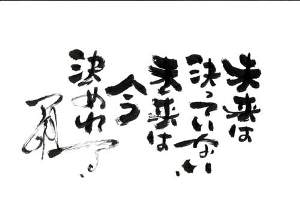 未来は
決っていない
未来は
今
決められる